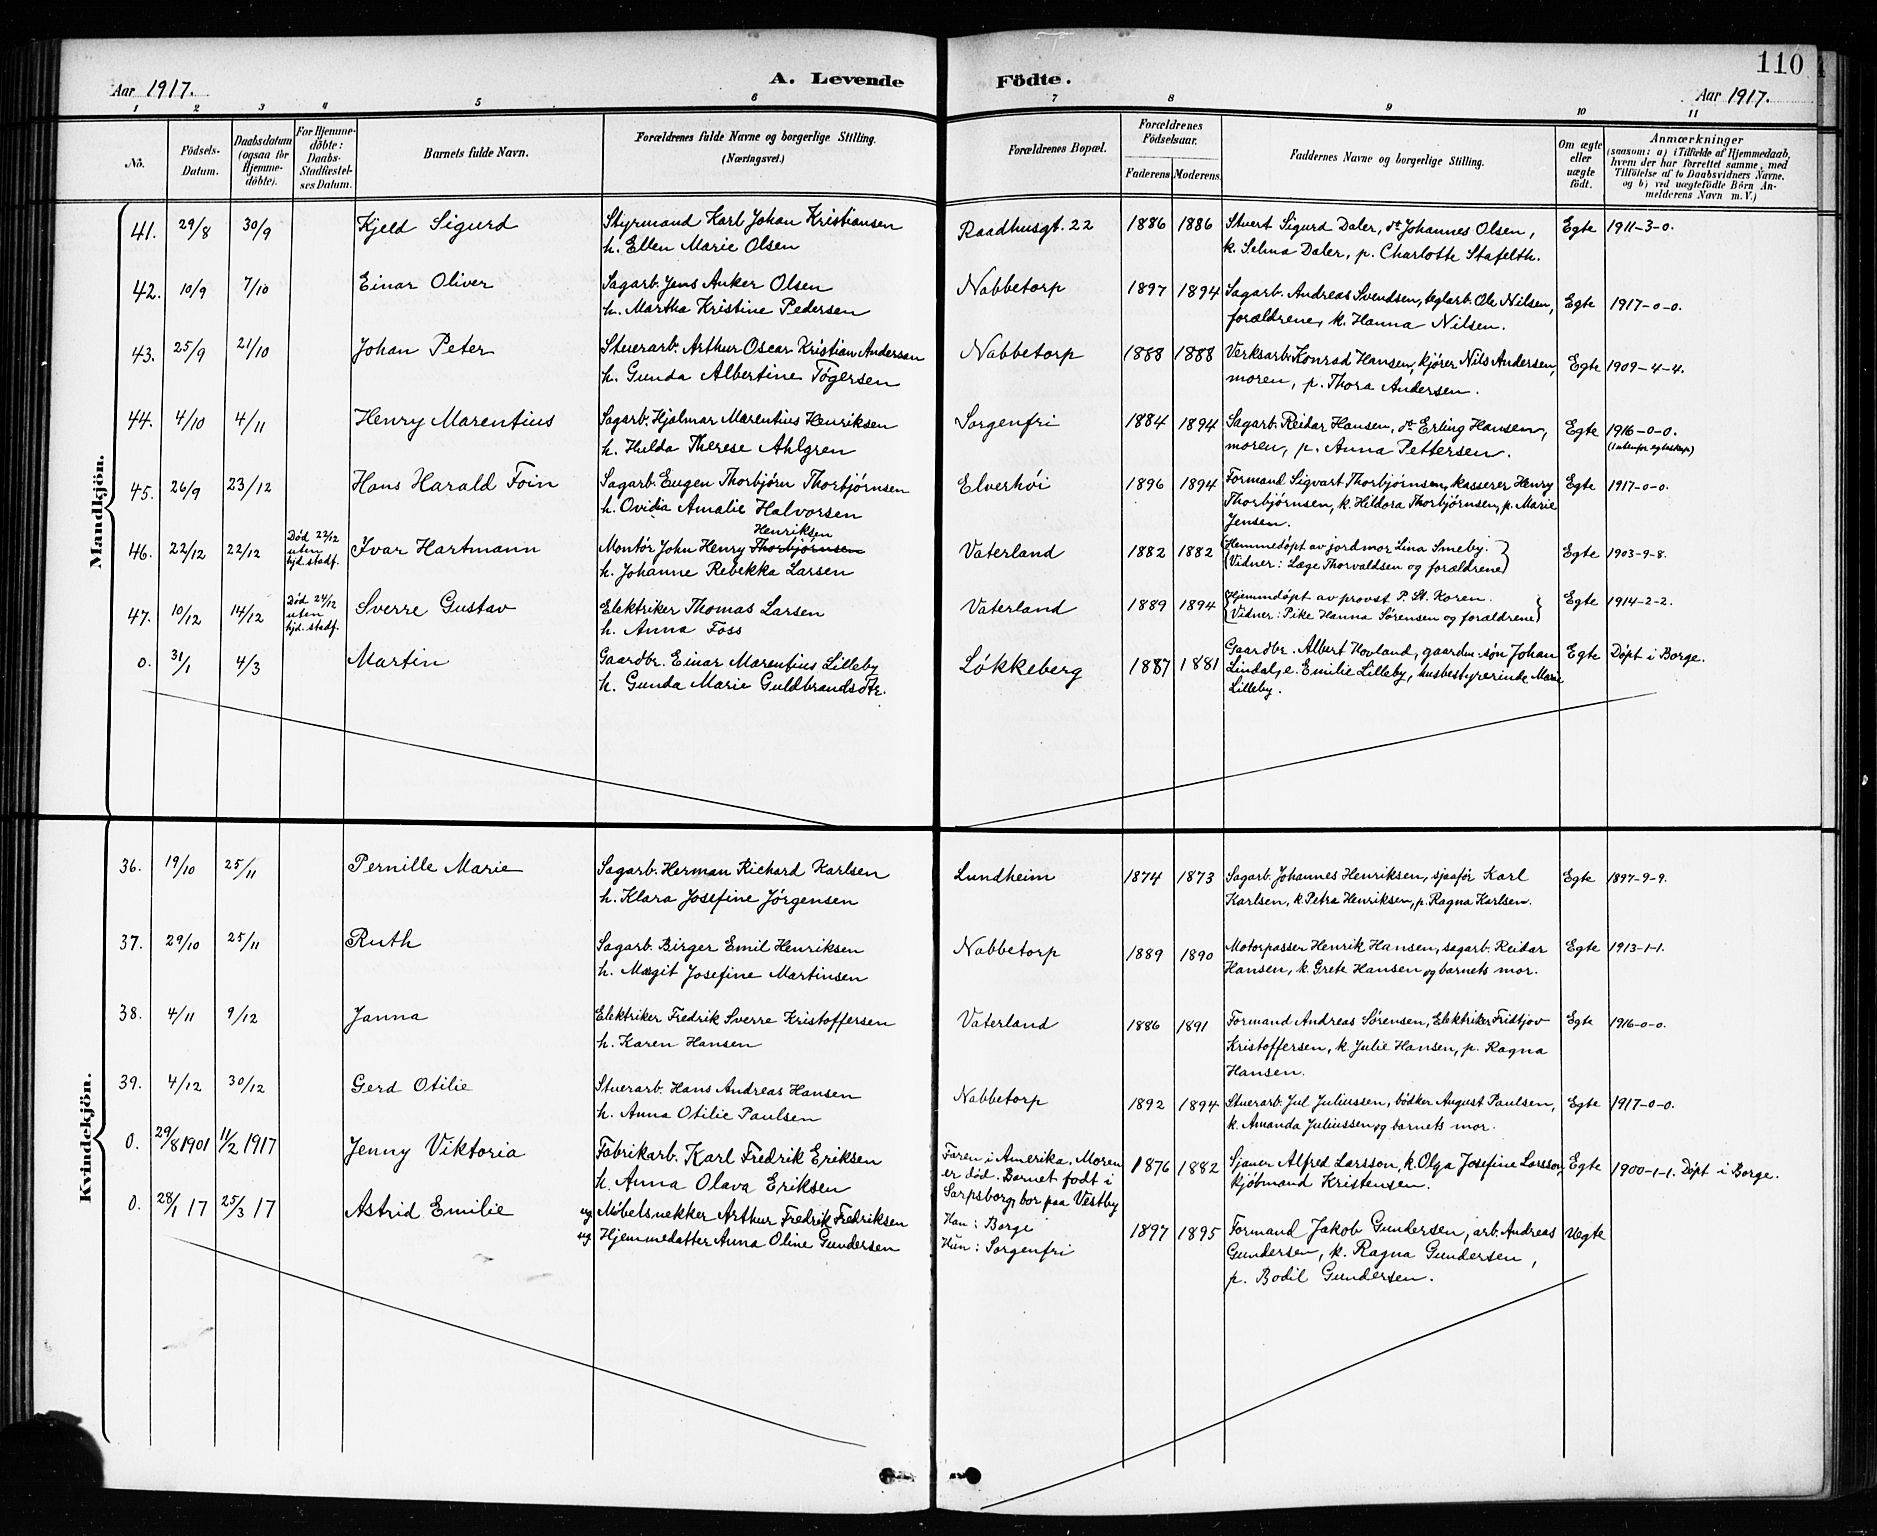 110
Aar 1917.
A. Levende Födte.
Aar 1917.
1 2 3 4 5 6 7 8 9 10 11
No.
Födsels-Datum.
Daabsdatum (ogsaa for Hjemmedöbte).
For Hjemmedöbte: Daabs-Stadfæstelses Datum.
Barnets fulde Navn.
Forældrenes fulde Navne og borgerlige Stilling.
(Næringsvei.)
Forældrenes Bopæl.
Forældrenes Födselsaar.
Faderens. Moderens.
Faddernes Navne og borgerlige Stilling.
Om ægte eller uægte födt.
Anmærkninger
(saasom: a) i Tilfælde af Hjemmedaab, hvem der har forrettet samme, med Tilföielse af to Daabsvidners Navne. og b) ved uægtefödte Börn Anmelderens Navn m. V.)
Mandkjön.
41. 29/8 30/9 Kjeld Sigurd Styrmand Karl Johan Kristiansen Raadhusgt. 22 1886 1886 Stuert Sigurd Daler, do Johannes Olsen, Egte 1911-3-0.
h. Ellen Marie Olsen k. Selma Daler, p. Charlotte Stafelth.
42. 10/9 7/10 Einar Oliver Sagarb. Jens Anker Olsen Nabbetorp 1897 1894 Sagarb. Andreas Svendsen, teglarb. Ole Nilsen, Egte 1917-0-0.
h. Martha Kristine Pedersen forældrene, k. Hanna Nilsen.
43. 25/9 21/10 Johan Peter Stuerarb. Arthur Oscar Kristian Andersen Nabbetorp 1888 1888 Verksarb. Konrad Hansen, kjører Nils Andersen, Egte 1909-4-4.
h. Gunda Albertine Tøgersen moren, p. Thora Andersen.
44. 4/10 4/11 Henry Marentius Sagarb. Hjalmar Marentius Henriksen Sorgenfri 1884 1894 Sagarb. Reidar Hansen, do Erling Hansen, Egte 1916-0-0.
h. Hulda Therese Ahlgren moren, p. Anna Pettersen.
45. 26/9 23/12 Hans Harald Foin Sagarb. Eugen Thorbjørn Thorbjørnsen Elverhøi 1896 1894 Formand Sigvart Thorbjørnsen, kasserer Henry Egte 1917-0-0.
h. Ovidia Amalie Halvorsen Thorbjørnsen, k. Hildora Thorbjørnsen, p. Marie
Jensen.
Henriksen
46. 22/12 22/12 Død 22/12 uten hjd. stadf. Ivar Hartmann Montør John Henry Thorbjørnsen Vaterland 1882 1882 (Hjemmedøpt av jordmor Lina Smeby. Egte 1903-9-8.
h. Johanne Rebekka Larsen Vidner: Læge Thorvaldsen og forældrene)
47. 10/12 14/12 Død 24/12 uten hjd. stadf. Sverre Gustav Elektriker Thomas Larsen Vaterland 1889 1894 {Hjemmedøpt av provst P. St. Koren. Egte 1914-2-2.
h. Anna Foss Vidner: Pike Hanna Sørensen og forældrene}
0. 31/1 4/3 Martin Gaardbr. Einar Marentius Lilleby Løkkeberg 1887 1881 Gaardbr. Albert Hovland, gaardm. søn Johan Egte Døpt i Borge.
h. Gunda Marie Guldbrandsdtr. Lindal, e. Emilie Lilleby, husbestyrerinde Marie
Lilleby.
Kvindekjön.
36. 19/10 25/11 Pernille Marie Sagarb. Herman Richard Karlsen Lundheim 1874 1873 Sagarb. Johannes Henriksen, sjaafør Karl Egte 1897-9-9.
h. Klara Josefine Jørgensen Karlsen, k. Petra Henriksen, p. Ragna Karlsen.
37. 29/10 25/11 Ruth Sagarb. Birger Emil Henriksen Nabbetorp 1889 1890 Motorpasser Henrik Hansen, sagarb. Reidar Egte 1913-1-1.
h. Magit Josefine Martinsen Hansen, k. Grete Hansen og barnets mor.
38. 4/11 9/12 Janna Elektriker Fredrik Sverre Kristoffersen Vaterland 1886 1891 Formand Andreas Sørensen, Elektriker Fridtjov Egte 1916-0-0.
h. Karen Hansen Kristoffersen, k. Julie Hansen, p. Ragna
Hansen.
39. 4/12 30/12 Gerd Otilie Stuerarb. Hans Andreas Hansen Nabbetorp 1892 1894 Stuerarb. Jul Juliussen, bødker August Paulsen, Egte 1917-0-0.
h. Anna Otilie Paulsen k. Amanda Juliussen og barnets mor.
0. 29/8 1901 11/2 1917 Jenny Viktoria Fabrikarb. Karl Fredrik Eriksen Faren i Amerika. Moren 1876 1882 Sjauer Alfred Larsson, k. Olga Josefine Larsson, Egte 1900-1-1. Døpt i Borge.
h. Anna Olava Eriksen er død. Barnet født i kjøbmand Kristensen.
Sarpsborg, bor paa Vestby
0. 28/1 17 25/3 17 Astrid Emilie ug. Møbelsnekker Arthur Fredrik Fredriksen Han: Borge 1897 1895 Formand Jakob Gundersen, arb. Andreas Uegte
ug. Hjemmedatter Anna Oline Gundersen Hun: Sorgenfri Gundersen, k. Ragna Gundersen,
p. Bodil Gundersen.